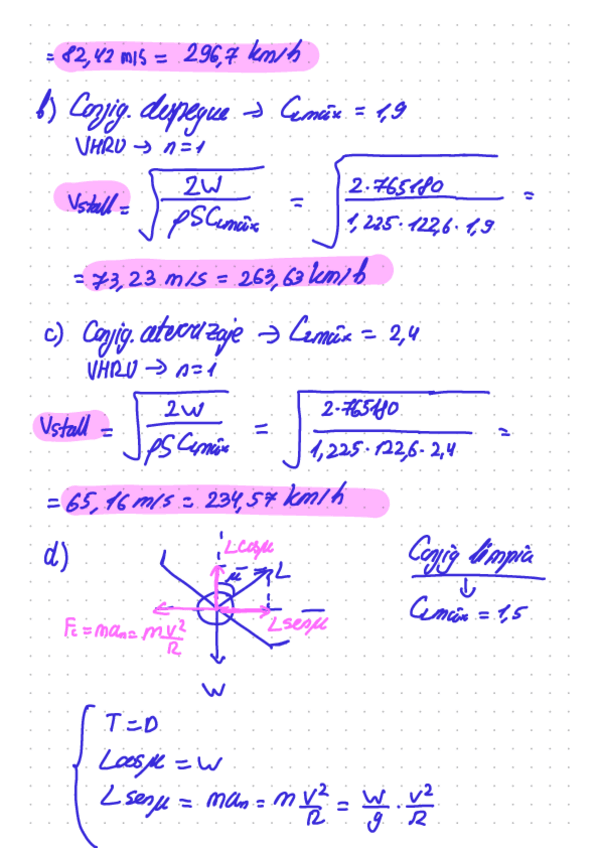 = 82,42 m/s = 296,7 km/h
b) Config. despegue → CLmáx = 1,9
VHRU → n = 1
Vstall = √(2W / ρSCLmáx) = √(2·765180 / 1,225·122,6·1,9) =
= 73,23 m/s = 263,63 km/h
c) Config. aterrizaje → CLmáx = 2,4
VHRU → n = 1
Vstall = √(2W / ρSCLmáx) = √(2·765180 / 1,225·122,6·2,4) =
= 65,16 m/s = 234,57 km/h
d)
L cosμ
μ
L
L senμ
Fc = man = m v²/R
W
Config limpia
↓
CLmáx = 1,5
T = D
L cosμ = W
L senμ = man = m v²/R = W/g · v²/R